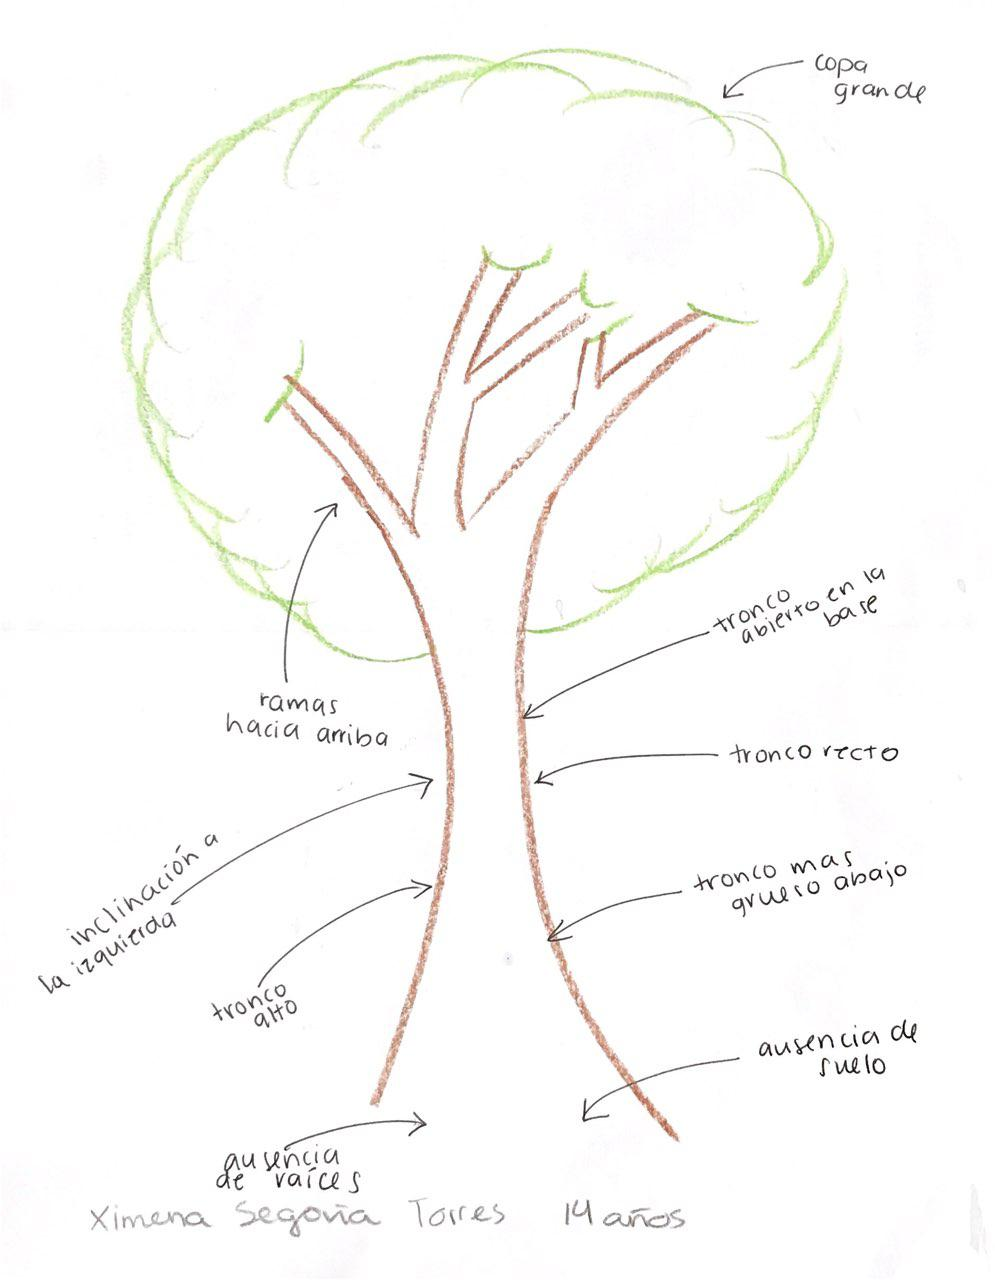 copa
grande
tronco
abierto en la
base
ramas
hacia arriba
tronco recto
inclinación a
la izquierda
tronco mas
grueso abajo
tronco
alto
ausencia de
suelo
ausencia
de raíces
Ximena Segovia Torres 14 años